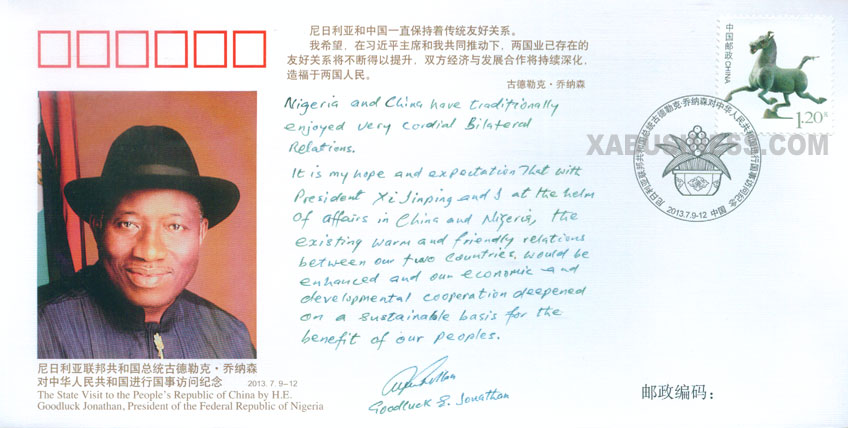 尼日利亚和中国一直保持着传统友好关系。
我希望，在习近平主席和我共同推动下，两国业已存在的
友好关系将不断得以提升，双方经济与发展合作将持续深化，
造福于两国人民。
古德勒克·乔纳森
Nigeria and China have traditionally
enjoyed very cordial Bilateral
Relations.
It is my hope and expectation That with
President Xi Jinping and I at the helm
Of affairs in China and Nigeria, the
existing warm and friendly relations
between our two Countries. would be
enhanced and our economic and
developmental cooperation deepened
on a sustainable basis for the
benefit of our peoples.
Goodluck E. Jonathan
尼日利亚联邦共和国总统古德勒克·乔纳森
对中华人民共和国进行国事访问纪念 2013.7.9-12
The State Visit to the People's Republic of China by H.E.
Goodluck Jonathan, President of the Federal Republic of Nigeria
中国邮政 CHINA
1.20元
XABUSINESS.COM
尼日利亚联邦共和国总统古德勒克·乔纳森对中华人民共和国进行国事访问纪念
2013.7.9-12 中国·北京
邮政编码：